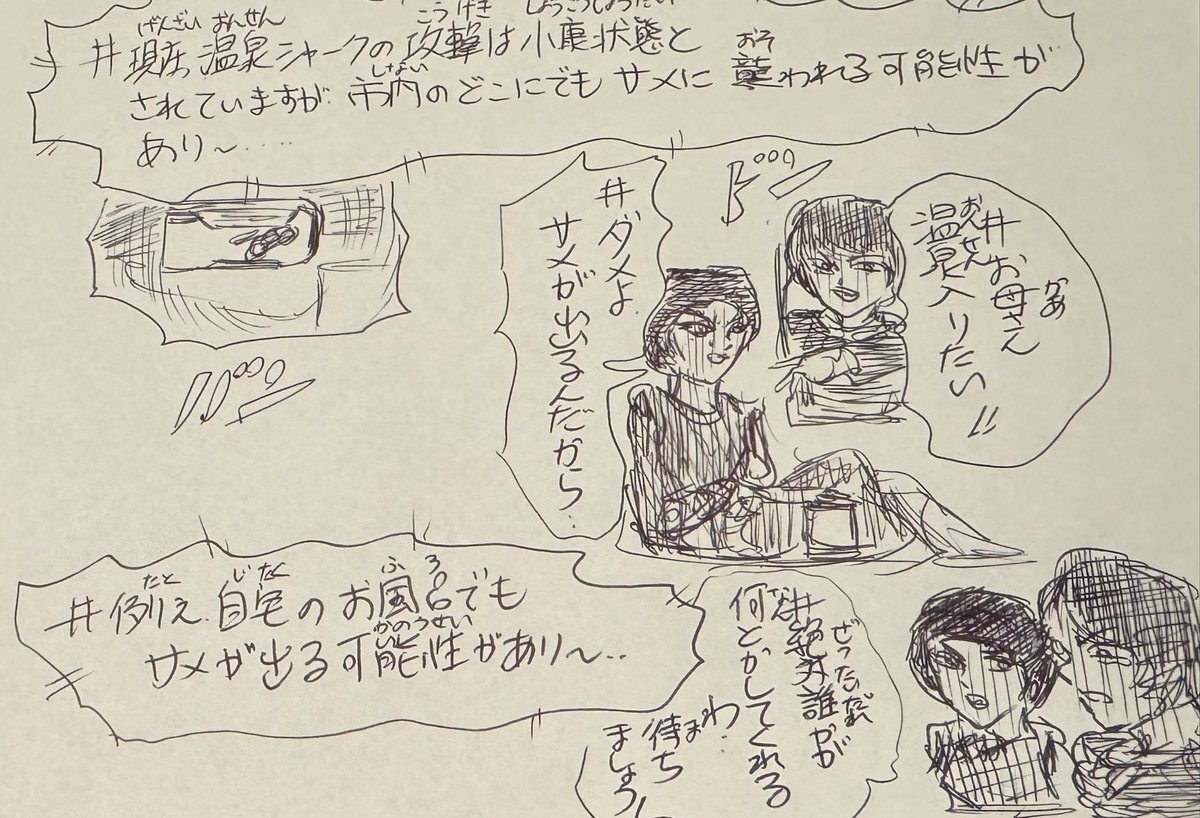 #現在温泉シャークの攻撃は小康状態と
げんざい おんせん こうげき しょうこうじょうたい
されていますが市内のどこにでもサメに襲われる可能性が
しない おそ
あり〜‥‥
#お母さん
かあ
温泉入りたい!!
おんせん
#ダメよ
サメが出るんだから‥
#例え自宅のお風呂でも
たと じたく ふろ
サメが出る可能性があり〜‥
かのうせい
#絶対誰かが
ぜったいだれ
何とかしてくれる
なん
わ
待ち
ま
ましょう